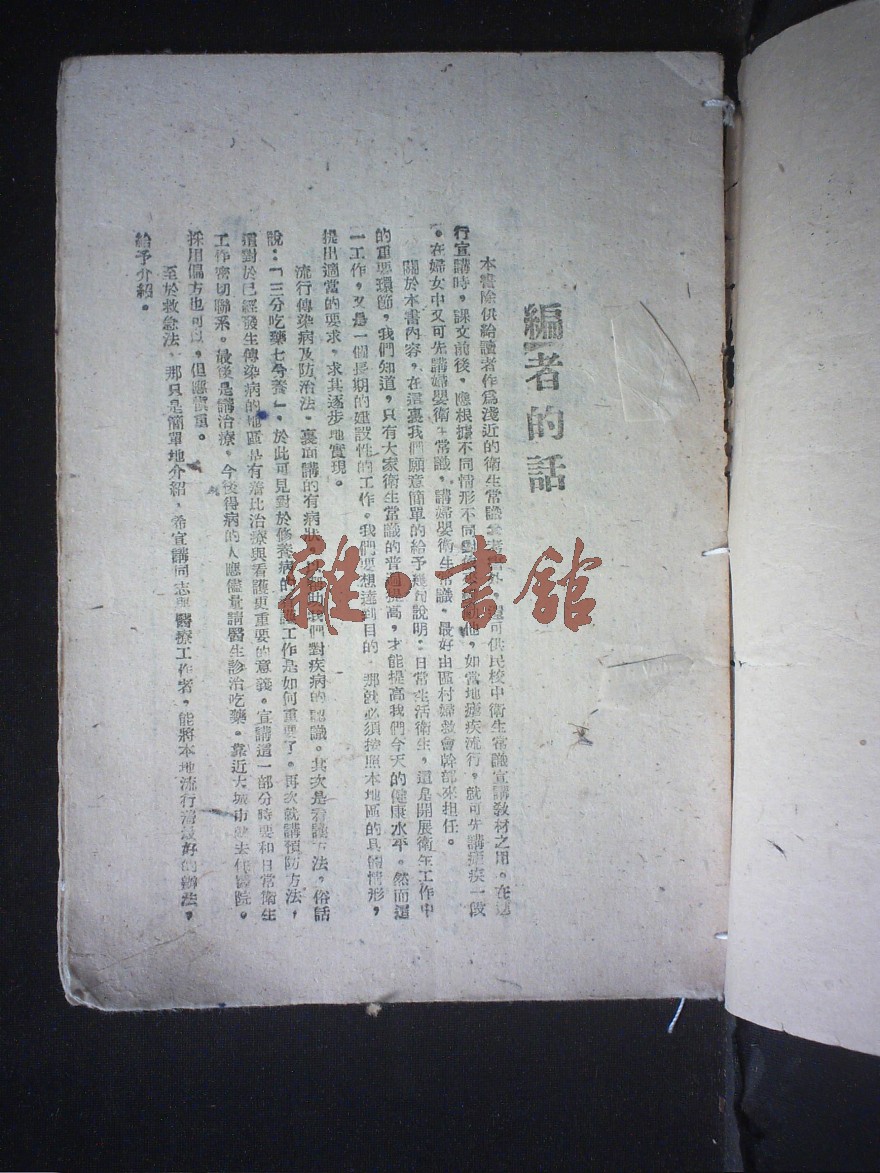 編者的話
本書除供給讀者作爲淺近的衞生常識參考外，還可供民校中衞生常識宣講敎材之用。在進
行宣講時，課文前後，應根據不同情形不同對象，如當地瘧疾流行，就可先講瘧疾一段
。在婦女中又可先講婦嬰衞生常識，講婦嬰衞生常識，最好由區村婦救會幹部來担任。
關於本書內容，在這裏我們願意簡單的給予幾句說明：日常生活衞生，這是開展衞生工作中
的重要環節，我們知道，只有大家衞生常識的普遍提高，才能提高我們今天的健康水平。然而這
一工作，又是一個長期的建設性的工作。我們要想達到目的，那就必須按照本地區的具體情形，
提出適當的要求，求其逐步地實現。
流行傳染病及防治法，裏面講的有病狀，以幫助我們對疾病的認識。其次是看護方法，俗話
說：「三分吃藥七分養」，於此可見對於修養病的看護工作是如何重要了。再次就講預防方法，
這對於已經發生傳染病的地區是有着比治療與看護更重要的意義。宣講這一部分時要和日常衞生
工作密切聯系。最後是講治療，今後得病的人應儘量請醫生診治吃藥。靠近大城市就去住醫院。
採用偏方也可以，但應愼重。
至於救急法，那只是簡單地介紹，希宣講同志與醫療工作者，能將本地流行着最好的辦法，
給予介紹。
雜·書舘